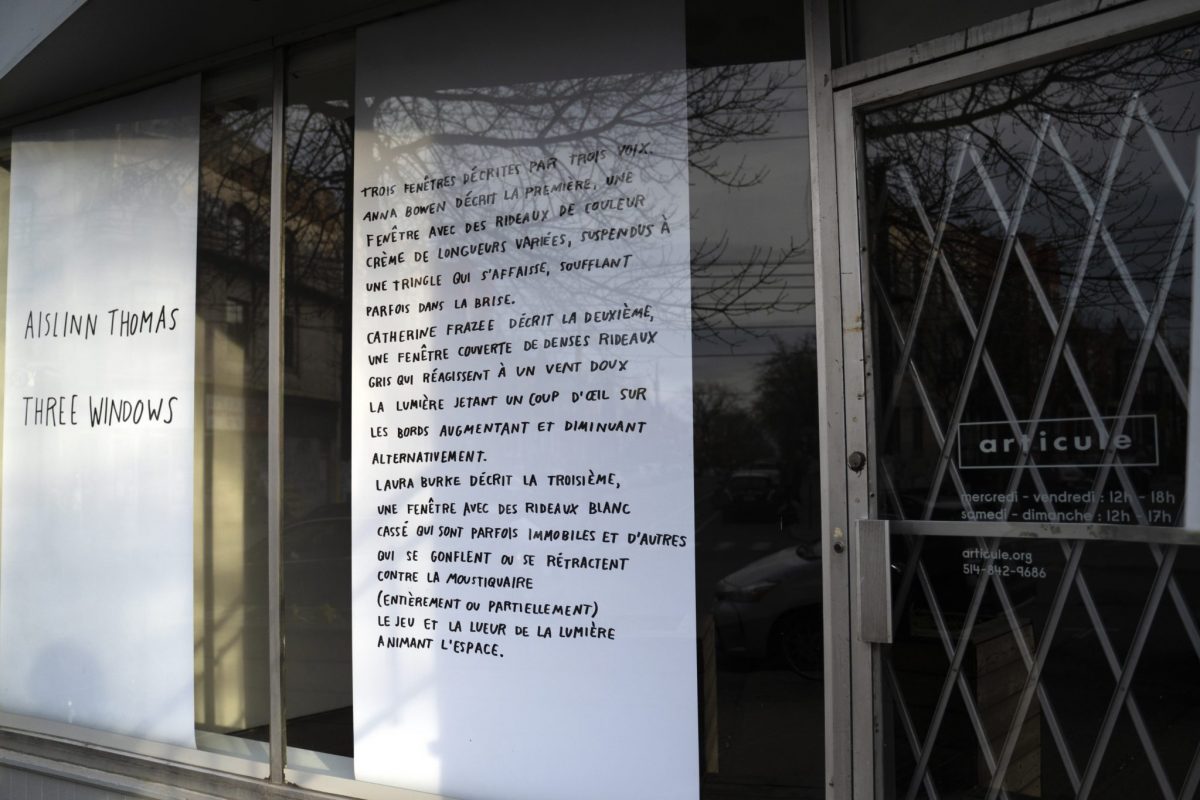 AISLINN THOMAS
THREE WINDOWS
TROIS FENÊTRES DÉCRITES PAR TROIS VOIX.
ANNA BOWEN DÉCRIT LA PREMIÈRE, UNE
FENÊTRE AVEC DES RIDEAUX DE COULEUR
CRÈME DE LONGUEURS VARIÉES, SUSPENDUS À
UNE TRINGLE QUI S'AFFAISSE, SOUFFLANT
PARFOIS DANS LA BRISE.
CATHERINE FRAZEE DÉCRIT LA DEUXIÈME,
UNE FENÊTRE COUVERTE DE DENSES RIDEAUX
GRIS QUI RÉAGISSENT À UN VENT DOUX
LA LUMIÈRE JETANT UN COUP D'ŒIL SUR
LES BORDS AUGMENTANT ET DIMINUANT
ALTERNATIVEMENT.
LAURA BURKE DÉCRIT LA TROISIÈME,
UNE FENÊTRE AVEC DES RIDEAUX BLANC
CASSÉ QUI SONT PARFOIS IMMOBILES ET D'AUTRES
QUI SE GONFLENT OU SE RÉTRACTENT
CONTRE LA MOUSTIQUAIRE
(ENTIÈREMENT OU PARTIELLEMENT)
LE JEU ET LA LUEUR DE LA LUMIÈRE
ANIMANT L'ESPACE.
articule
mercredi - vendredi : 12h - 18h
samedi - dimanche : 12h - 17h
articule.org
514-842-9686